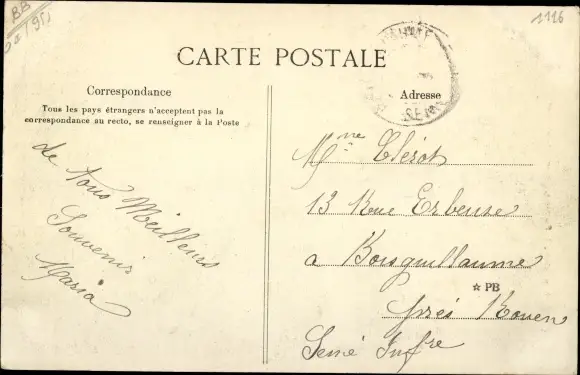 BB
1116
CARTE POSTALE
Correspondance
Tous les pays étrangers n'acceptent pas la
correspondance au recto, se renseigner à la Poste
de tous Meilleurs
Souvenirs
Maria
Adresse
Mme Clérot
13 Rue Erbeuse
a Bonguillaume
☆ PB
prés Rouen
Seine Infre